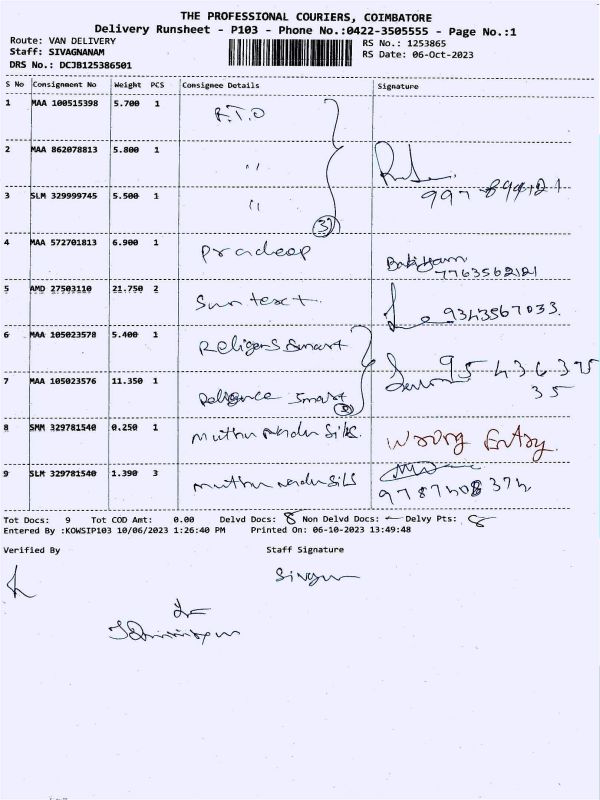 THE PROFESSIONAL COURIERS, COIMBATORE
Delivery Runsheet - P103 - Phone No.:0422-3505555 - Page No.:1
Route: VAN DELIVERY
RS No.: 1253865
Staff: SIVAGNANAM
RS Date: 06-Oct-2023
DRS No.: DCJB125386501
S No Consignment No Weight PCS Consignee Details Signature
1 MAA 100515398 5.700 1 R.T.O
2 MAA 862078813 5.800 1 "
3 SLM 329999745 5.500 1 "
3
4 MAA 572701813 6.900 1 Pradeep
7763562121
5 AMD 27503110 21.750 2 Suntext
9343567033
6 MAA 105023578 5.400 1 Religens Smart
7 MAA 105023576 11.350 1 Religence Smart
95436375
35
8 SMM 329781540 0.250 1 Muthu Silks. Wrong Entry.
9 SLM 329781540 1.390 3 Muthu
9787408374
Tot Docs: 9 Tot COD Amt: 0.00 Delvd Docs: 8 Non Delvd Docs: - Delvy Pts: 8
Entered By :KOWSIP103 10/06/2023 1:26:40 PM Printed On: 06-10-2023 13:49:48
Verified By Staff Signature